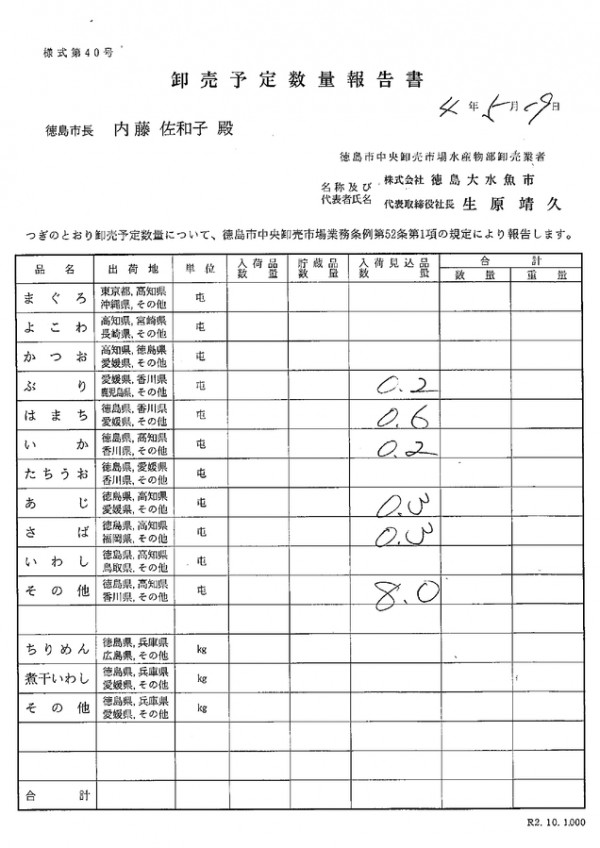 様式第40号
卸売予定数量報告書
4年5月19日
徳島市長 内藤 佐和子 殿
徳島市中央卸売市場水産物部卸売業者
名称及び 株式会社 徳島大水魚市
代表者氏名 代表取締役社長 生原靖久
つぎのとおり卸売予定数量について、徳島市中央卸売市場業務条例第52条第1項の規定により報告します。
品名 出荷地 単位 入荷品数量 貯蔵品数量 入荷見込品数量 合計
数量 重量
まぐろ 東京都, 高知県 屯
沖縄県, その他
よこわ 高知県, 宮崎県 屯
長崎県, その他
かつお 高知県, 徳島県 屯
愛媛県, その他
ぶり 愛媛県, 香川県 屯 0.2
鹿児島県, その他
はまち 徳島県, 香川県 屯 0.6
愛媛県, その他
いか 徳島県, 高知県 屯 0.2
香川県, その他
たちうお 徳島県, 愛媛県 屯
香川県, その他
あじ 徳島県, 高知県 屯 0.3
愛媛県, その他
さば 徳島県, 高知県 屯 0.3
福岡県, その他
いわし 徳島県, 高知県 屯
鳥取県, その他
その他 徳島県, 高知県 屯 8.0
香川県, その他
ちりめん 徳島県, 兵庫県 kg
広島県, その他
煮干いわし 徳島県, 兵庫県 kg
愛媛県, その他
その他 徳島県, 兵庫県 kg
愛媛県, その他
合計
R2. 10. 1.000